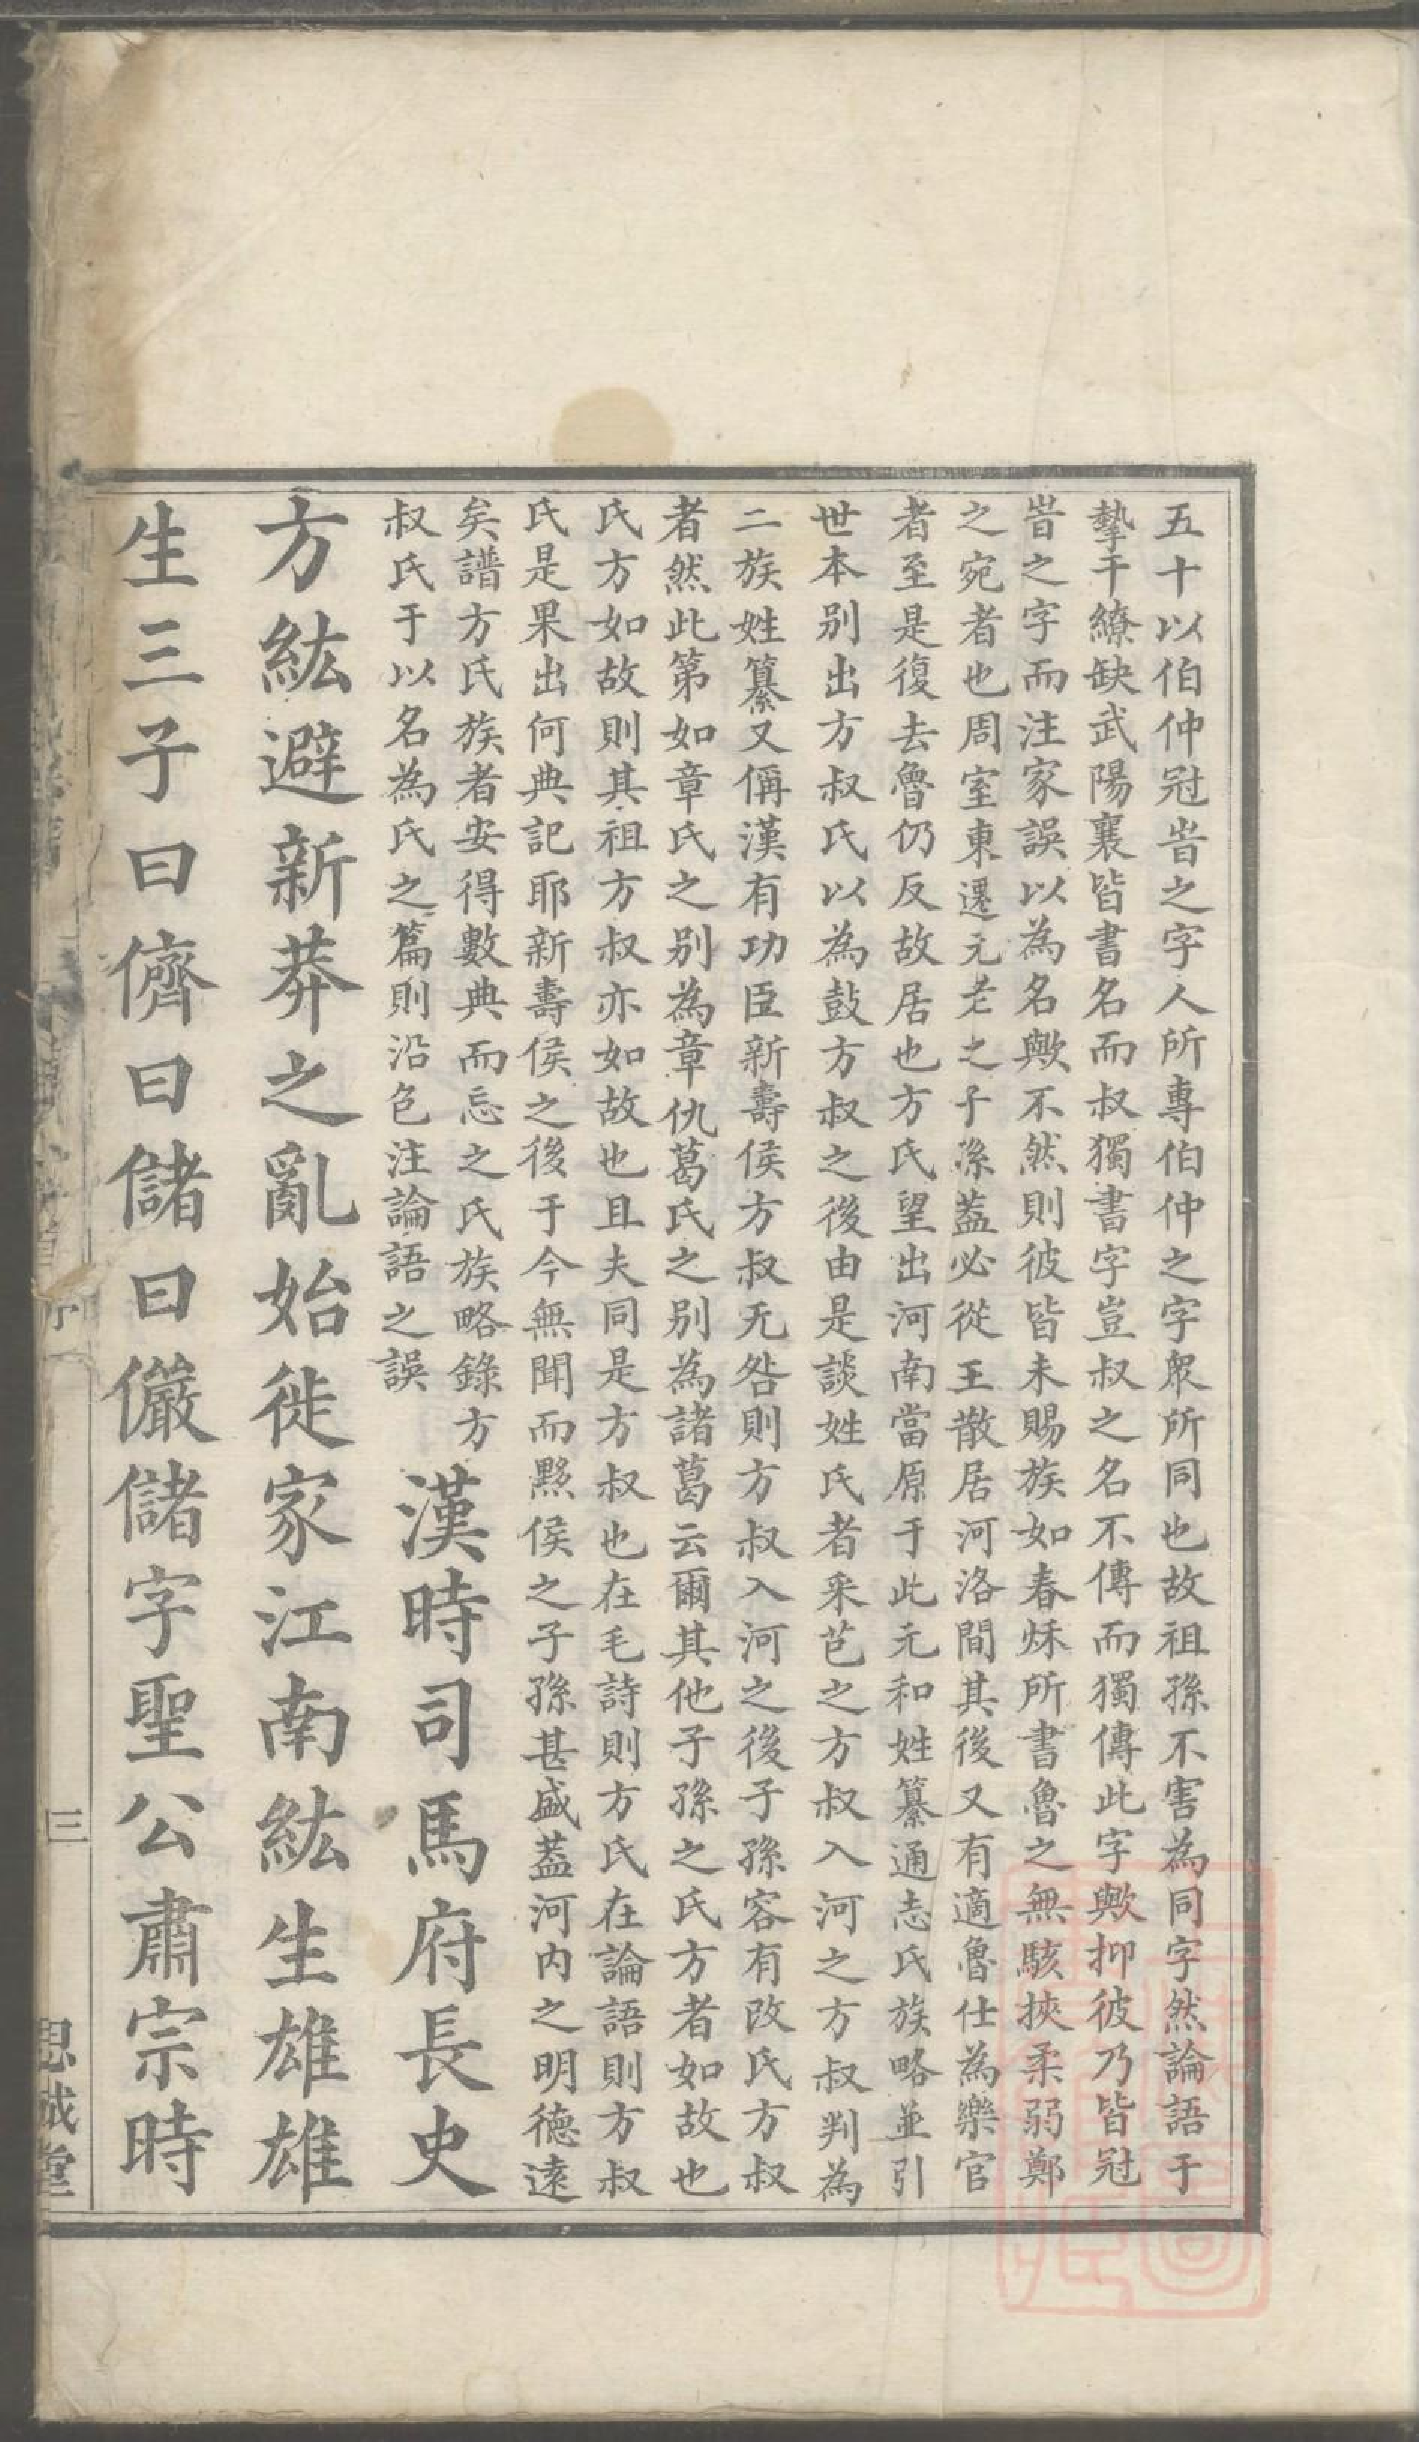 五十以伯仲冠岩之字人所專伯仲之字眾所同也故祖孫不害為同字然論語于
摯干繚缺武陽襄皆書名而叔獨書字豈叔之名不傳而獨傳此字歟抑彼乃皆冠
岩之字而注家誤以為名歟不然則彼皆未賜族如春秌所書魯之無駭挾柔弱鄭
之宛者也周室東遷元老之子孫蓋必從王散居河洛間其後又有適魯仕為樂官
者至是復去魯仍反故居也方氏望出河南當原于此元和姓纂通志氏族略並引
世本别出方叔氏以為鼓方叔之後由是談姓氏者采芑之方叔入河之方叔判為
二族姓纂又偁漢有功臣新壽侯方叔无咎則方叔入河之後子孫容有改氏方叔
者然此第如章氏之别為章仇葛氏之别為諸葛云爾其他子孫之氏方者如故也
氏方如故則其祖方叔亦如故也且夫同是方叔也在毛詩則方氏在論語則方叔
氏是果出何典記耶新壽侯之後于今無聞而黟侯之子孫甚盛蓋河内之明德遠
矣譜方氏族者安得數典而忘之氏族略錄方
叔氏于以名為氏之篇則沿包注論語之誤
漢時司馬府長史
方紘避新莽之亂始徙家江南紘生雄雄
生三子曰儕曰儲曰儼儲字聖公肅宗時
序
三
思誠堂